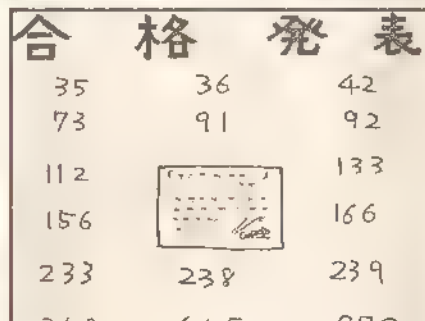 合格発表
35 36 42
73 91 92
112 133
156 166
233 238 239